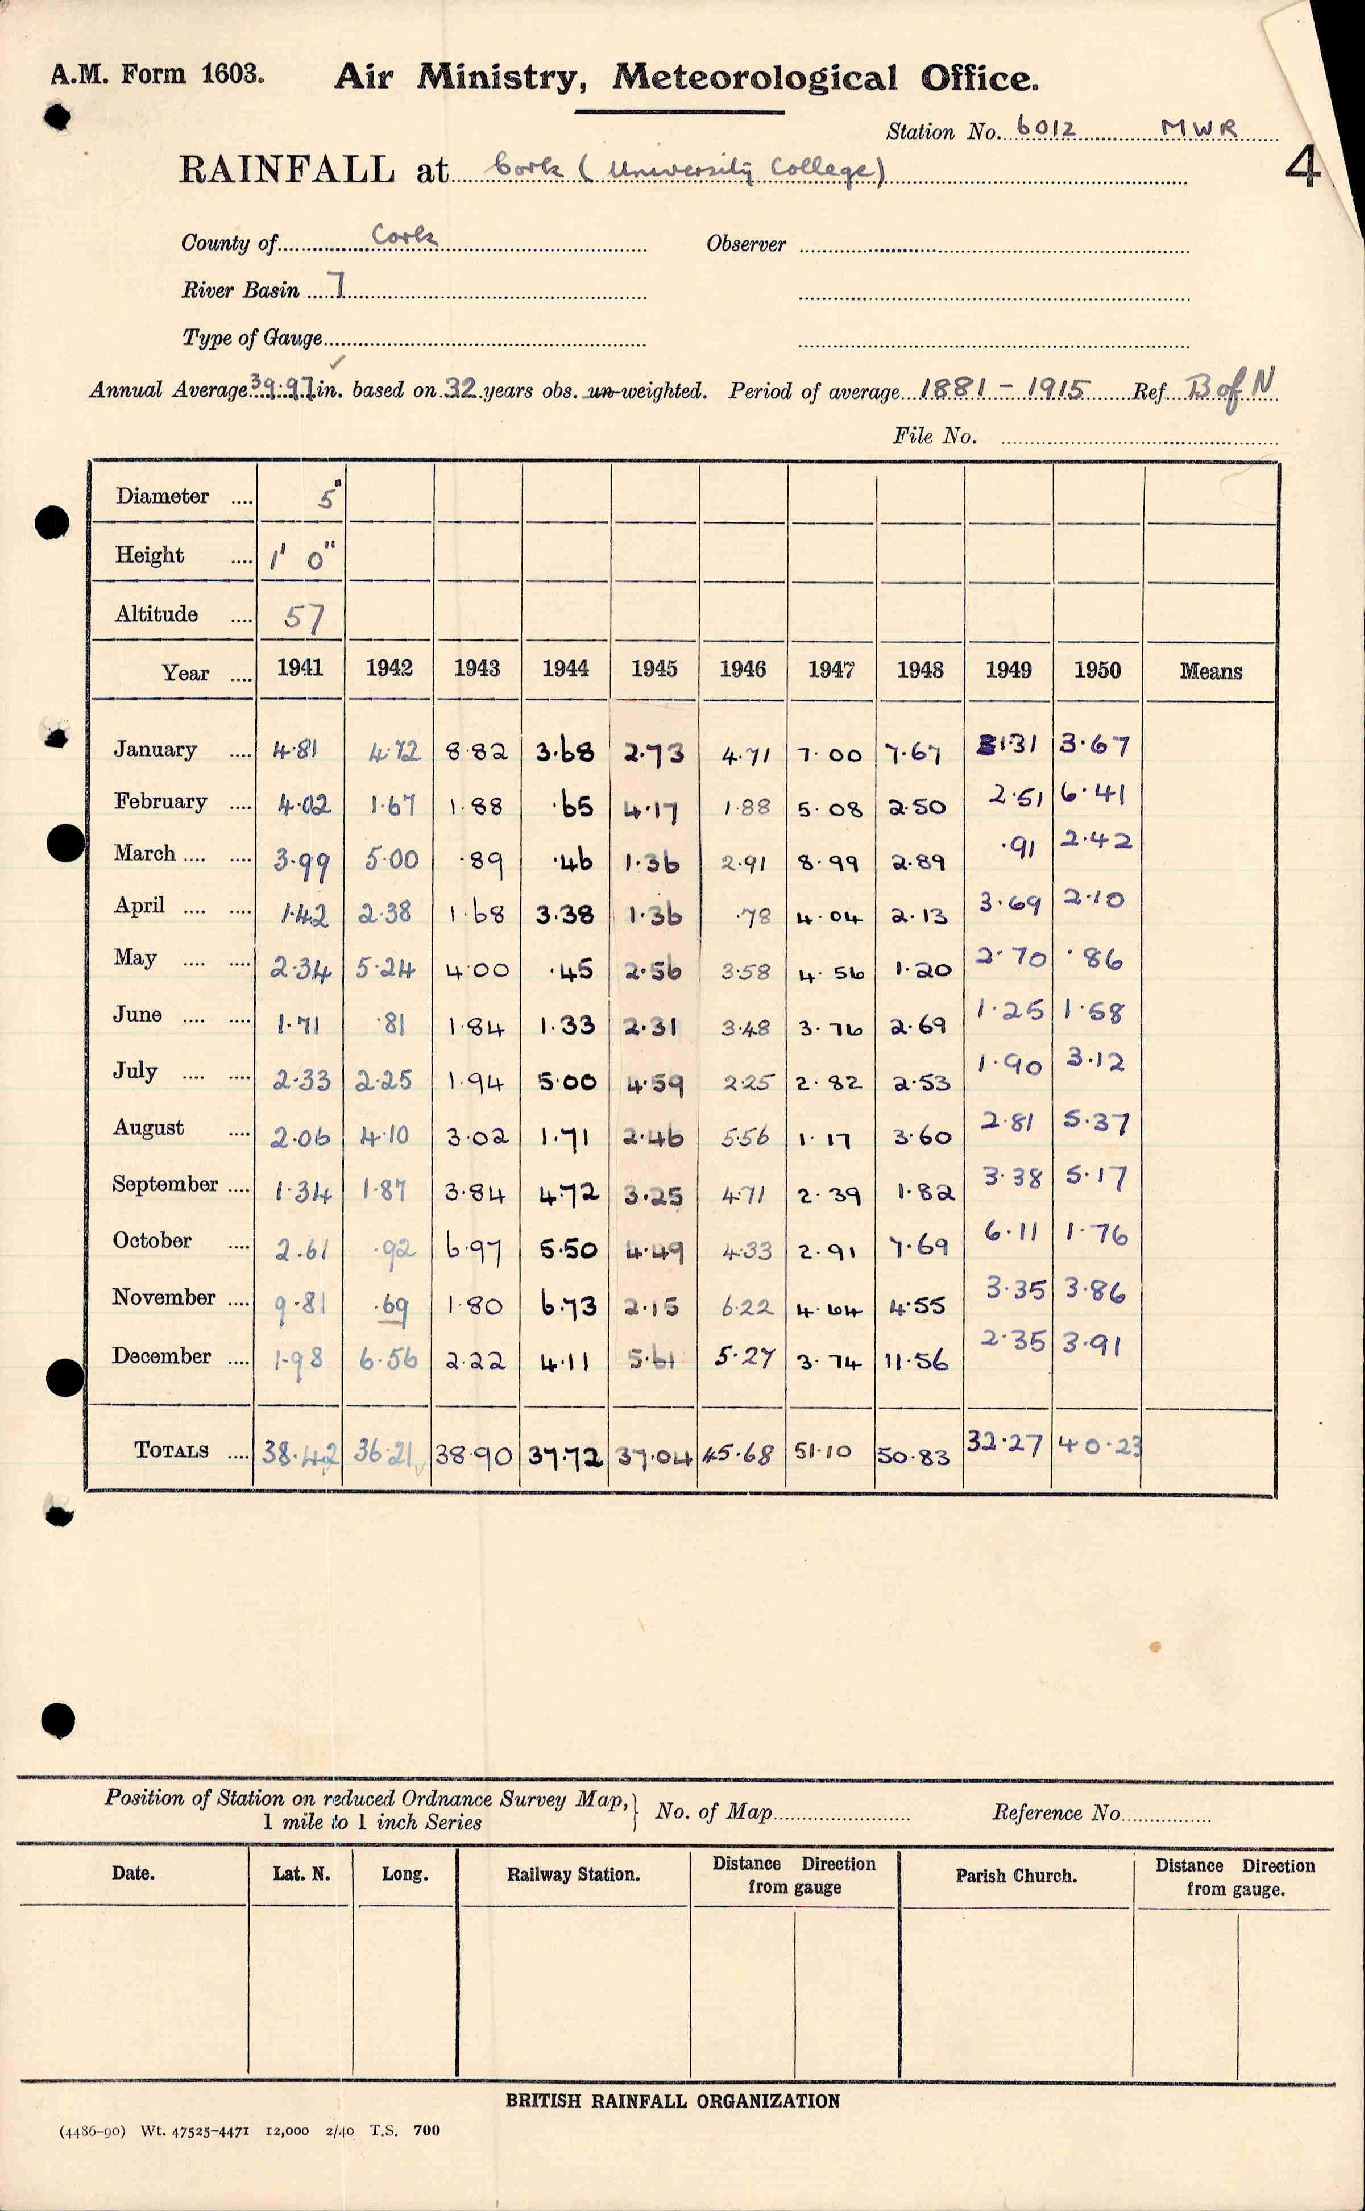 A.M. Form 1603. Air Ministry, Meteorological Office.
Station No. 6012 MWR
RAINFALL at Cork (University College) 4
County of Cork Observer
River Basin 7
Type of Gauge
Annual Average 39.97 in. based on 32 years obs. un-weighted. Period of average 1881 - 1915 Ref. B of N
File No.
Diameter .... 5"
Height .... 1' 0"
Altitude .... 57
Year .... 1941 1942 1943 1944 1945 1946 1947 1948 1949 1950 Means
January .... 4.81 4.72 8.82 3.68 2.73 4.71 7.00 7.67 1.31 3.67
February .... 4.02 1.67 1.88 .65 4.17 1.88 5.08 2.50 2.51 6.41
March .... .... 3.99 5.00 .89 .46 1.36 2.91 8.99 2.89 .91 2.42
April .... .... 1.42 2.38 1.68 3.38 1.36 .78 4.04 2.13 3.69 2.10
May .... .... 2.34 5.24 4.00 .45 2.56 3.58 4.56 1.20 2.70 .86
June .... .... 1.71 .81 1.84 1.33 2.31 3.48 3.76 2.69 1.25 1.58
July .... .... 2.33 2.25 1.94 5.00 4.59 2.25 2.82 2.53 1.90 3.12
August .... 2.06 4.10 3.02 1.71 2.46 5.56 1.17 3.60 2.81 5.37
September .... 1.34 1.87 3.84 4.72 3.25 4.71 2.39 1.82 3.38 5.17
October .... 2.61 .92 6.97 5.50 4.49 4.33 2.91 7.69 6.11 1.76
November .... 9.81 .69 1.80 6.73 2.15 6.22 4.64 4.55 3.35 3.86
December .... 1.98 6.56 2.22 4.11 5.61 5.27 3.74 11.56 2.35 3.91
TOTALS .... 38.42 36.21 38.90 37.72 37.04 45.68 51.10 50.83 32.27 40.23
Position of Station on reduced Ordnance Survey Map, 1 mile to 1 inch Series } No. of Map Reference No.
Date. Lat. N. Long. Railway Station. Distance Direction from gauge Parish Church. Distance Direction from gauge.
BRITISH RAINFALL ORGANIZATION
(4486-90) Wt. 47525-4471 12,000 2/40 T.S. 700